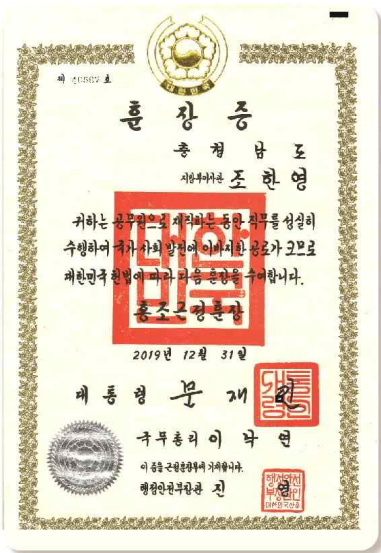 대한민국
훈장증
충청남도
지방부이사관 조한영
귀하는 공무원으로 재직하는 동안 직무를 성실히
수행하여 국가 사회 발전에 이바지한 공로가 크므로
대한민국 헌법에 따라 다음 훈장을 수여합니다.
홍조근정훈장
2019년 12월 31일
대통령 문재인
국무총리 이낙연
이 증을 근정훈장부에 기재합니다.
행정안전부장관 진영